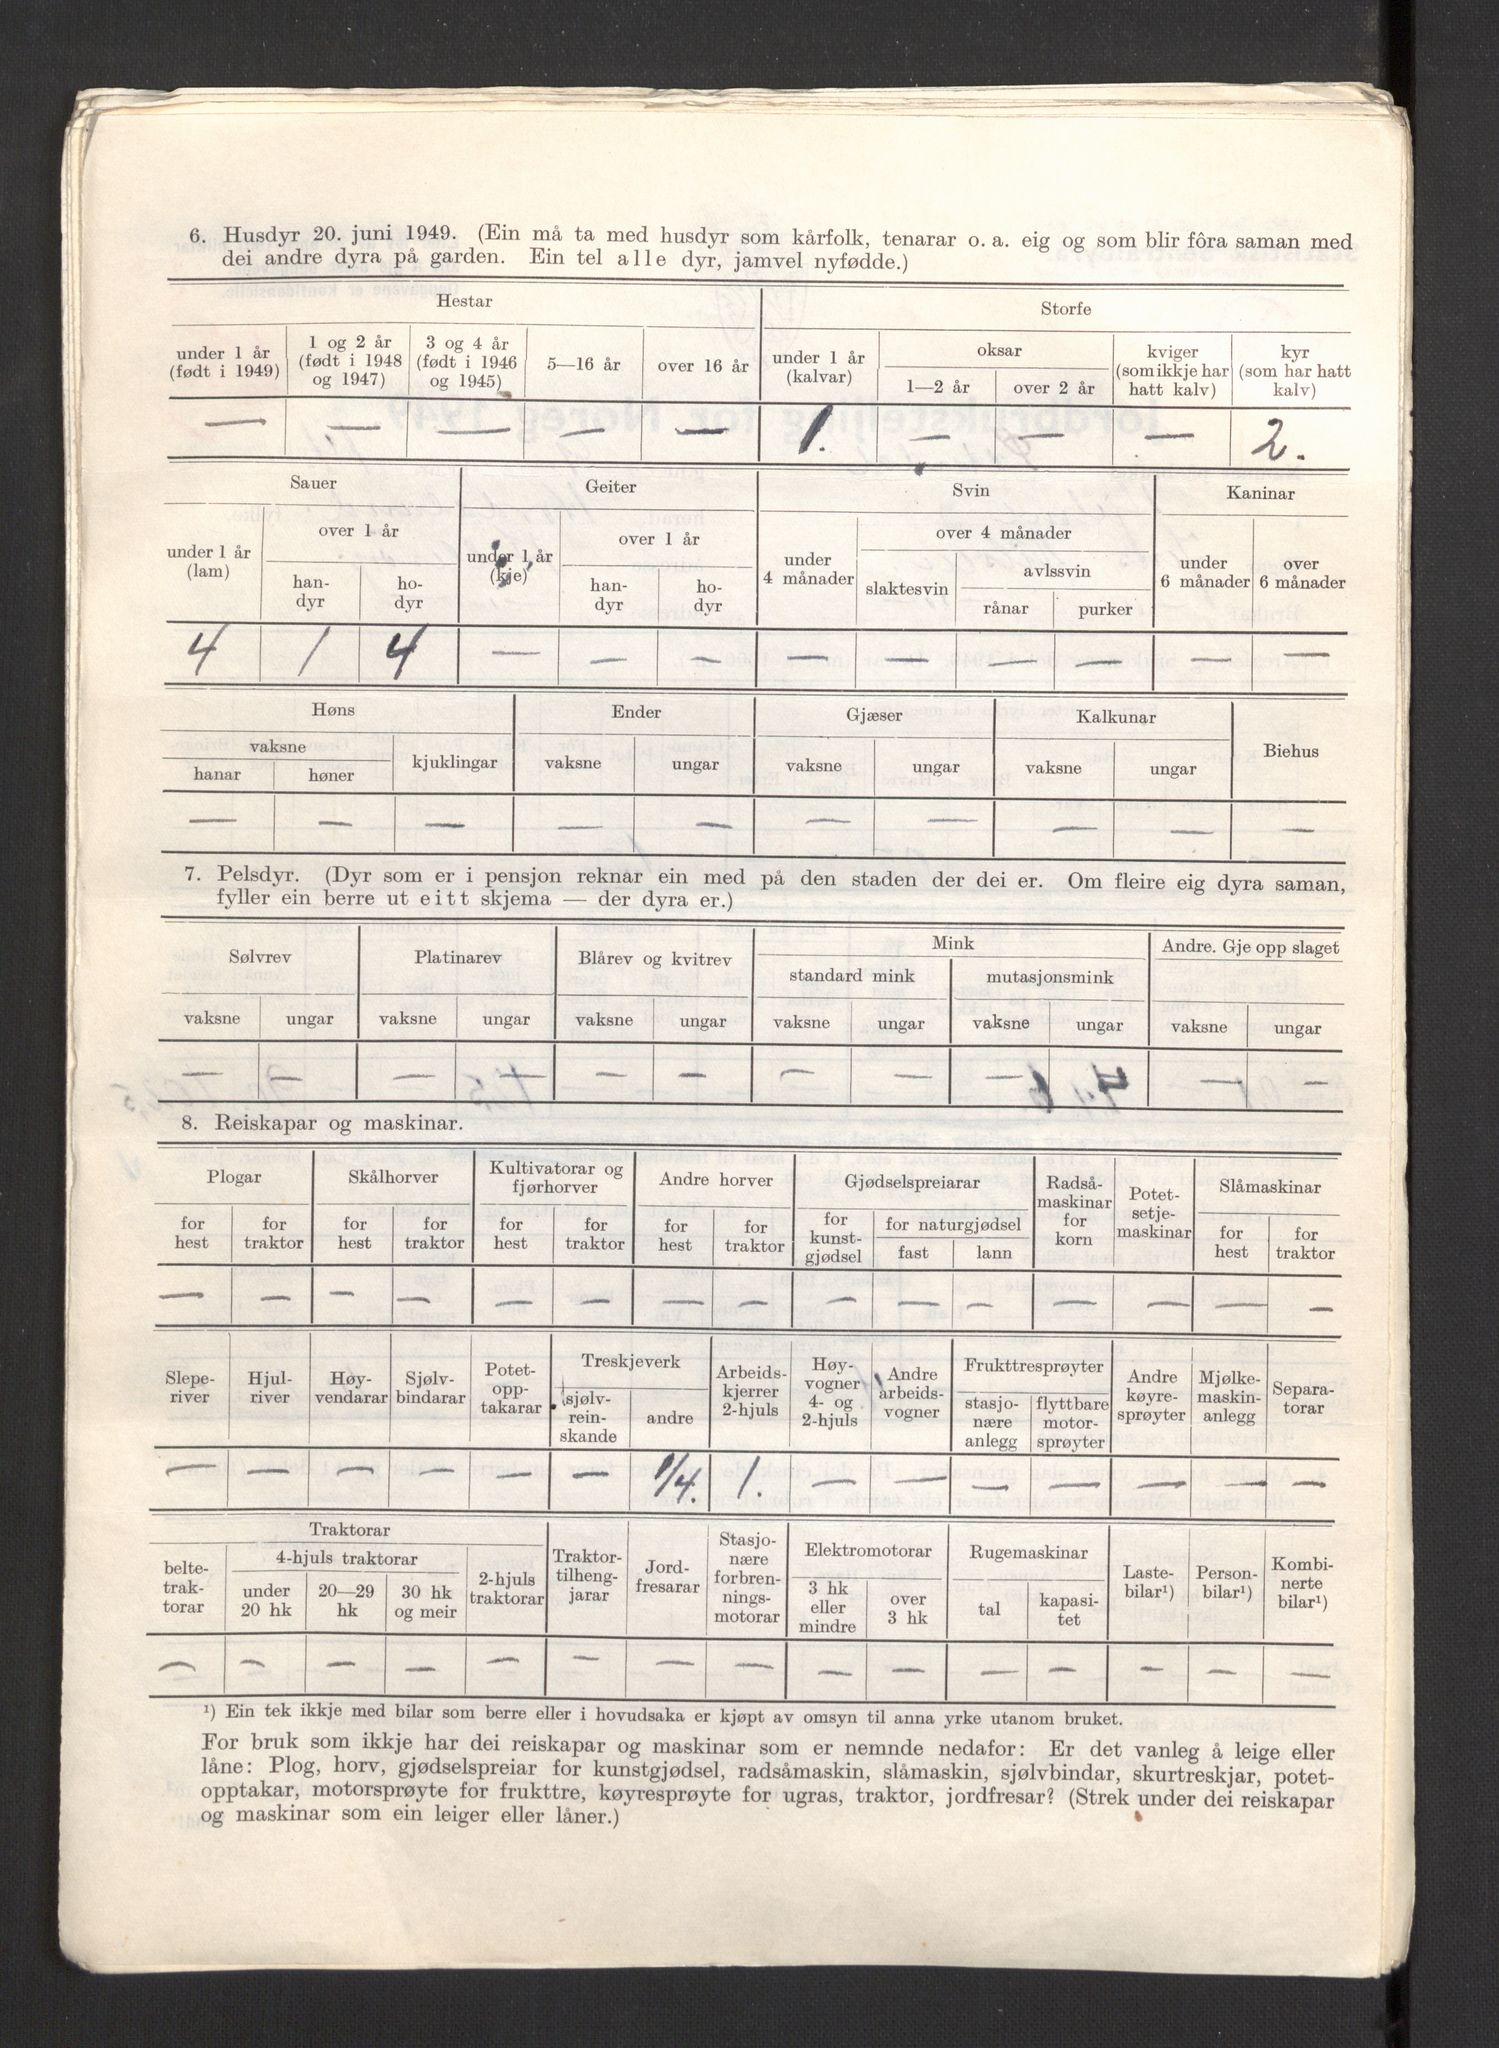 6. Husdyr 20. juni 1949. (Ein må ta med husdyr som kårfolk, tenarar o. a. eig og som blir fôra saman med
dei andre dyra på garden. Ein tel alle dyr, jamvel nyfødde.)
Hestar Storfe
under 1 år (født i 1949) 1 og 2 år (født i 1948 og 1947) 3 og 4 år (født i 1946 og 1945) 5—16 år over 16 år under 1 år (kalvar) oksar kviger (som ikkje har hatt kalv) kyr (som har hatt kalv)
1—2 år over 2 år
— — — — — 1. — — — 2.
Sauer Geiter Svin Kaninar
under 1 år (lam) over 1 år under 1 år (kje) over 1 år under 4 månader over 4 månader under 6 månader over 6 månader
handyr hodyr handyr hodyr slaktesvin avlssvin
rånar purker
4 1 4 — — — — — — — — —
Høns Ender Gjæser Kalkunar Biehus
vaksne kjuklingar vaksne ungar vaksne ungar vaksne ungar
hanar høner
— — — — — — — — — —
7. Pelsdyr. (Dyr som er i pensjon reknar ein med på den staden der dei er. Om fleire eig dyra saman,
fyller ein berre ut eitt skjema — der dyra er.)
Sølvrev Platinarev Blårev og kvitrev Mink Andre. Gje opp slaget
standard mink mutasjonsmink
vaksne ungar vaksne ungar vaksne ungar vaksne ungar vaksne ungar vaksne ungar
— — — — — — — — — — —
8. Reiskapar og maskinar.
Plogar Skålhorver Kultivatorar og fjørhorver Andre horver Gjødselspreiarar Radsåmaskinar for korn Potetsetjemaskinar Slåmaskinar
for hest for traktor for hest for traktor for hest for traktor for hest for traktor for kunstgjødsel for naturgjødsel for hest for traktor
fast lann
— — — — — — — — — — — — — — —
Sleperiver Hjulriver Høyvendarar Sjølvbindarar Potetopptakarar Treskjeverk Arbeidskjerrer 2-hjuls Høyvogner 4- og 2-hjuls Andre arbeidsvogner Frukttresprøyter Andre køyresprøyter Mjølkemaskinanlegg Separatorar
sjølvreinskande andre stasjonære anlegg flyttbare motorsprøyter
— — — — — — 1/4. 1. — — — — — — —
Traktorar Traktortilhengjarar Jordfresarar Stasjonære forbrenningsmotorar Elektromotorar Rugemaskinar Lastebilar¹) Personbilar¹) Kombinerte bilar¹)
beltetraktorar 4-hjuls traktorar 2-hjuls traktorar 3 hk eller mindre over 3 hk tal kapasitet
under 20 hk 20—29 hk 30 hk og meir
— — — — — — — — — — — — — — —
¹) Ein tek ikkje med bilar som berre eller i hovudsaka er kjøpt av omsyn til anna yrke utanom bruket.
For bruk som ikkje har dei reiskapar og maskinar som er nemnde nedafor: Er det vanleg å leige eller
låne: Plog, horv, gjødselspreiar for kunstgjødsel, radsåmaskin, slåmaskin, sjølvbindar, skurtreskjar, potet-
opptakar, motorsprøyte for frukttre, køyresprøyte for ugras, traktor, jordfresar? (Strek under dei reiskapar
og maskinar som ein leiger eller låner.)